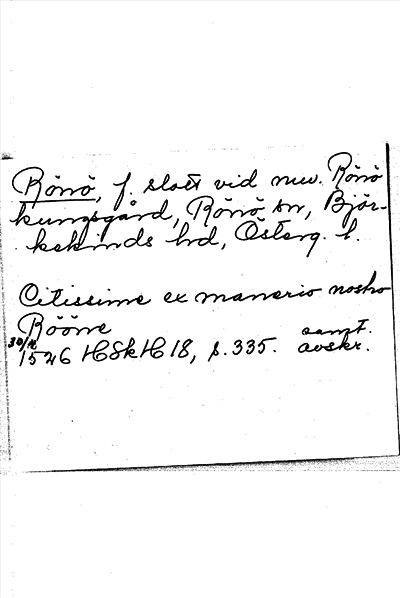 Rönö, f. slott vid nuv. Rönö
kungsgård, Rönö sn, Björ-
kekinds hd, Österg. l.
Citissime ex manerio nostro
Rööne
30/11 1526 HSkH 18, s. 335. samt. avskr.